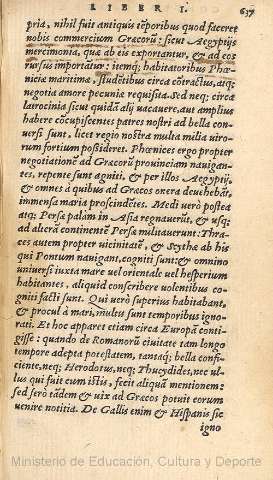 LIBER I. 637
pria, nihil fuit antiquis tēporibus quod faceret
nobis commercium Græcorũ: sicut Aegyptijs
mercimonia, quæ ab eis exportantur, & ad eos
rursus importãtur: itemq; habitatoribus Phœ
nicia maritima, studētibus circa cõtractus, atq;
negotia amore pecuniæ requisita. Sed neq; circa
latrocinia sicut quidã alij vacauere, aut amplius
habere cõcupiscentes patres nostri ad bella con
uersi sunt. licet regio nostra multa milia viro
rum fortium possideret. Phœnices ergo propter
negotiationē ad Græcorũ prouinciam nauigan
tes, repente sunt agniti, & per illos Aegyptij,
& omnes à quibus ad Græcos onera deuehebãt,
immensa maria proscindētes. Medi verò postea
atq; Persæ palàm in Asia regnauerũt, & usq;
ad alterã continentē Persæ militauerunt: Thra
ces autem propter vicinitatē, & Scythæ ab his
qui Pontum nauigant, cogniti sunt: & omnino
uniuersi iuxta mare uel orientale uel hesperium
habitantes, aliquid conscribere volentibus co-
gniti facti sunt. Qui verò superius habitabant,
& procul à mari, multis sunt temporibus igno-
rati. Et hoc apparet etiam circa Europã conti-
gisse: quando de Romanorũ ciuitate tam longo
tempore adepta potestatem, tantaq; bella confi-
ciente, neq; Herodotus, neq; Thucydides, nec ul
lus qui fuit cum istis, fecit aliquã mentionem:
sed serò tãdem & uix ad Græcos potuit eorum
uenire notitia. De Gallis enim & Hispanis sic
igno
Ministerio de Educación, Cultura y Deporte